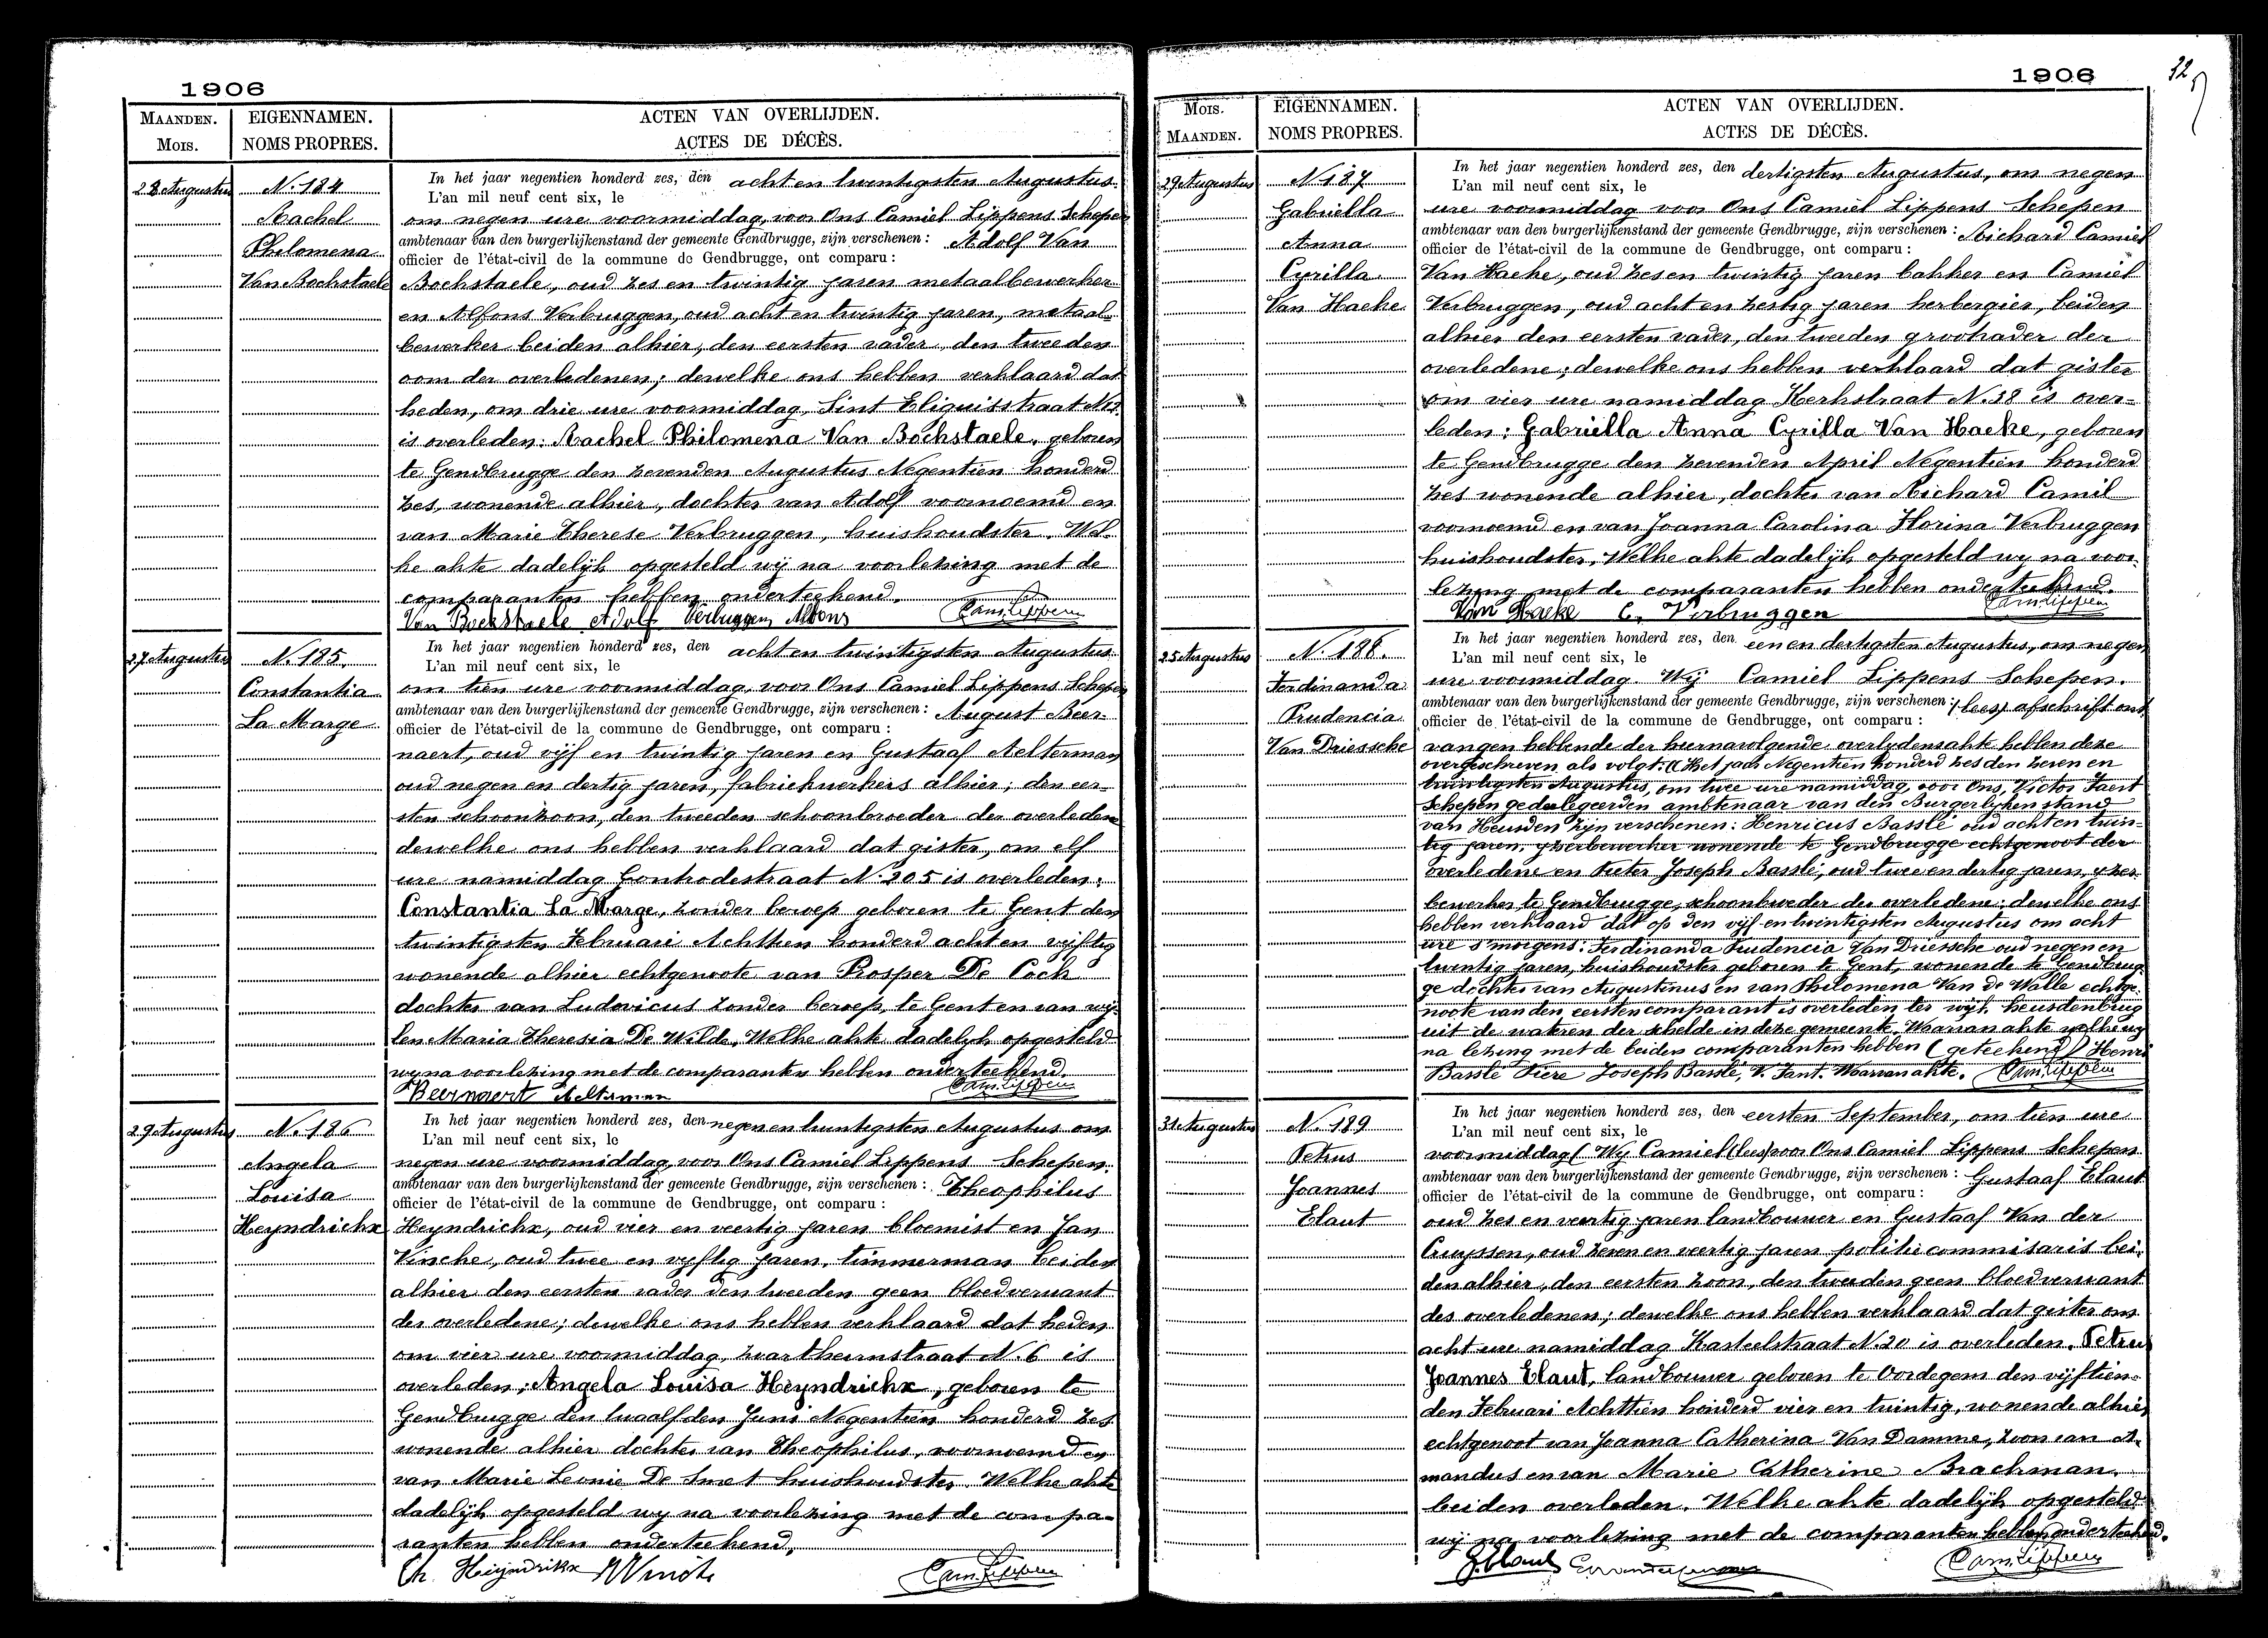 1906
MAANDEN.
MOIS.
EIGENNAMEN.
NOMS PROPRES.
ACTEN VAN OVERLIJDEN.
ACTES DE DÉCÈS.
28 Augustus
N. 184
Rachel
Philomena
Van Bockstaele
In het jaar negentien honderd zes, den achten twintigsten Augustus
L'an mil neuf cent six, le
om negen ure voormiddag, voor Ons Camiel Lippens Schepen
ambtenaar van den burgerlijkenstand der gemeente Gendbrugge, zijn verschenen: Adolf Van
officier de l'état-civil de la commune de Gendbrugge, ont comparu:
Bockstaele, oud zes en twintig jaren metaalbewerker
en Alfons Verbruggen, oud acht en twintig jaren, metaal-
bewerker beiden alhier, den eersten vader, den tweeden
oom der overledenen; dewelke ons hebben verklaard dat
heden, om drie ure voormiddag, Sint Eliguisstraat
is overleden: Rachel Philomena Van Bockstaele, geboren
te Gendbrugge den zevenden Augustus Negentien honderd
zes, wonende alhier, dochter van Adolf voornoemd en
van Marie Therese Verbruggen, huishoudster. Wel-
ke akte dadelijk opgesteld wij na voorlezing met de
comparanten hebben onderteekend.
Van Bockstaele Adolf Verbruggen Alfons Cam. Lippens
27 Augustus
N. 185.
Constantia
La Marge
In het jaar negentien honderd zes, den acht en twintigsten Augustus
L'an mil neuf cent six, le
om tien ure voormiddag, voor Ons Camiel Lippens Schepen
ambtenaar van den burgerlijkenstand der gemeente Gendbrugge, zijn verschenen: August Beer-
officier de l'état-civil de la commune de Gendbrugge, ont comparu:
naert, oud vijf en twintig jaren en Gustaaf Aelterman
oud negen en dertig jaren, fabriekwerkers alhier; den eer-
sten schoonzoon, den tweeden schoonbroeder der overledene
dewelke ons hebben verklaard dat gister, om elf
ure namiddag Controdestraat N. 205 is overleden:
Constantia La Marge, zonder beroep geboren te Gent den
twintigsten Februari Achttien honderd acht en vijftig
wonende alhier echtgenoote van Prosper De Cock
dochter van Ludovicus zonder beroep, te Gent en van wij-
len Maria Theresia De Wilde, Welke akte dadelijk opgesteld
wij na voorlezing met de comparanten hebben onderteekend.
Beernaert Aelterman Cam. Lippens
29 Augustus
N. 186
Angela
Louisa
Heyndrickx
In het jaar negentien honderd zes, den negen en twintigsten Augustus om
L'an mil neuf cent six, le
negen ure voormiddag, voor Ons Camiel Lippens Schepen.
ambtenaar van den burgerlijkenstand der gemeente Gendbrugge, zijn verschenen: Theophilus
officier de l'état-civil de la commune de Gendbrugge, ont comparu:
Heyndrickx, oud vier en veertig jaren bloemist en Jan
Vincke, oud twee en vijftig jaren, timmerman beiden
alhier den eersten vader den tweeden geen bloedverwant
der overledene; dewelke ons hebben verklaard dat heden
om vier ure voormiddag, N. 6 is
overleden; Angela Louisa Heyndrickx, geboren te
Gendbrugge den twaalfden Juni Negentien honderd zes
wonende alhier dochter van Theophilus, voornoemd en
van Marie Leonie De Smet huishoudster. Welke akte
dadelijk opgesteld wij na voorlezing met de compa-
ranten hebben onderteekend.
Th. Heijndrikx Cam. Lippens
1906
32
MOIS.
MAANDEN.
EIGENNAMEN.
NOMS PROPRES.
ACTEN VAN OVERLIJDEN.
ACTES DE DÉCÈS.
29 Augustus
N 187
Gabriella
Anna
Cyrilla
Van Haeke
In het jaar negentien honderd zes, den dertigsten Augustus, om negen
L'an mil neuf cent six, le
ure voormiddag voor Ons Camiel Lippens Schepen
ambtenaar van den burgerlijkenstand der gemeente Gendbrugge, zijn verschenen: Richard Camiel
officier de l'état-civil de la commune de Gendbrugge, ont comparu:
Van Haeke, oud zes en twintig jaren bakker en Camiel
Verbruggen, oud acht en zestig jaren herbergier, beiden
alhier den eersten vader, den tweeden grootvader der
overledene; dewelke ons hebben verklaard dat gister
om vier ure namiddag Kerkstraat N. 38 is over-
leden: Gabriella Anna Cyrilla Van Haeke, geboren
te Gendbrugge den zevenden April Negentien honderd
zes wonende alhier, dochter van Richard Camil
voornoemd en van Joanna Carolina Florina Verbruggen
huishoudster. Welke akte dadelijk opgesteld wij na voor-
lezing met de comparanten hebben onderteekend.
Van Haeke C. Verbruggen Cam. Lippens
25 Augustus
N. 188.
Ferdinanda
Prudencia
Van Driessche
In het jaar negentien honderd zes, den een en dertigsten Augustus, om negen
L'an mil neuf cent six, le
ure voormiddag Wij Camiel Lippens Schepen.
ambtenaar van den burgerlijkenstand der gemeente Gendbrugge, zijn verschenen: (lees) afschrift ont
officier de l'état-civil de la commune de Gendbrugge, ont comparu:
vangen hebbende der hiernavolgende overlydensakte hebben deze
overgeschreven als volgt: (Het jaar Negentien honderd zes den zeven en
twintigsten Augustus, om twee ure namiddag, voor Ons, Victor Faert
Schepen gedelegeerden ambtenaar van den Burgerlyken stand
van Heusden zijn verschenen: Henricus Basslé oud acht en twin-
tig jaren, yzerbewerker wonende te Gendbrugge echtgenoot der
overledene en Pieter Joseph Basslé, oud twee en dertig jaren, yzer-
bewerker te Gendbrugge, schoonbroeder der overledene; dewelke ons
hebben verklaard dat op den vijf en twintigsten Augustus om acht
ure s'morgens: Ferdinanda Prudencia Van Driessche oud negen en
twentig jaren, huishoudster geboren te Gent, wonende te Gendbrug-
ge dochter van Augustinus en van Philomena Van de Walle echtge-
noote van den eersten comparant is overleden ter wijk heusdenbrug
uit de wateren der schelde in deze gemeente. Waarvan akte welke wij
na lezing met de beiden comparanten hebben (geteekend) Henri
Basslé Piere Joseph Basslé, V. Fant. Waarvan akte. Cam. Lippens
31 Augustus
N. 189
Petrus
Joannes
Elaut
In het jaar negentien honderd zes, den eersten September, om tien ure
L'an mil neuf cent six, le
voormiddag (Wij Camiel (lees) voor Ons Camiel Lippens Schepen
ambtenaar van den burgerlijkenstand der gemeente Gendbrugge, zijn verschenen: Gustaaf Elaut
officier de l'état-civil de la commune de Gendbrugge, ont comparu:
oud zes en veertig jaren landbouwer en Gustaaf Van der
Cruyssen, oud zeven en veertig jaren politie commisaris bei-
den alhier, den eersten zoon, den tweeden geen bloedverwant
des overledenen; dewelke ons hebben verklaard dat gister om
acht ure namiddag Kasteelstraat N. 20 is overleden. Petrus
Joannes Elaut, landbouwer geboren te Oordegem den vijftien-
den Februari Achttien honderd vier en twintig, wonende alhier
echtgenoot van Joanna Catherina Van Damme, zoon van A-
mandus en van Marie Catherine Brackman.
beiden overleden. Welke akte dadelijk opgesteld
wij na voorlezing met de comparanten hebben onderteekend.
G. Elaut Cam. Lippens